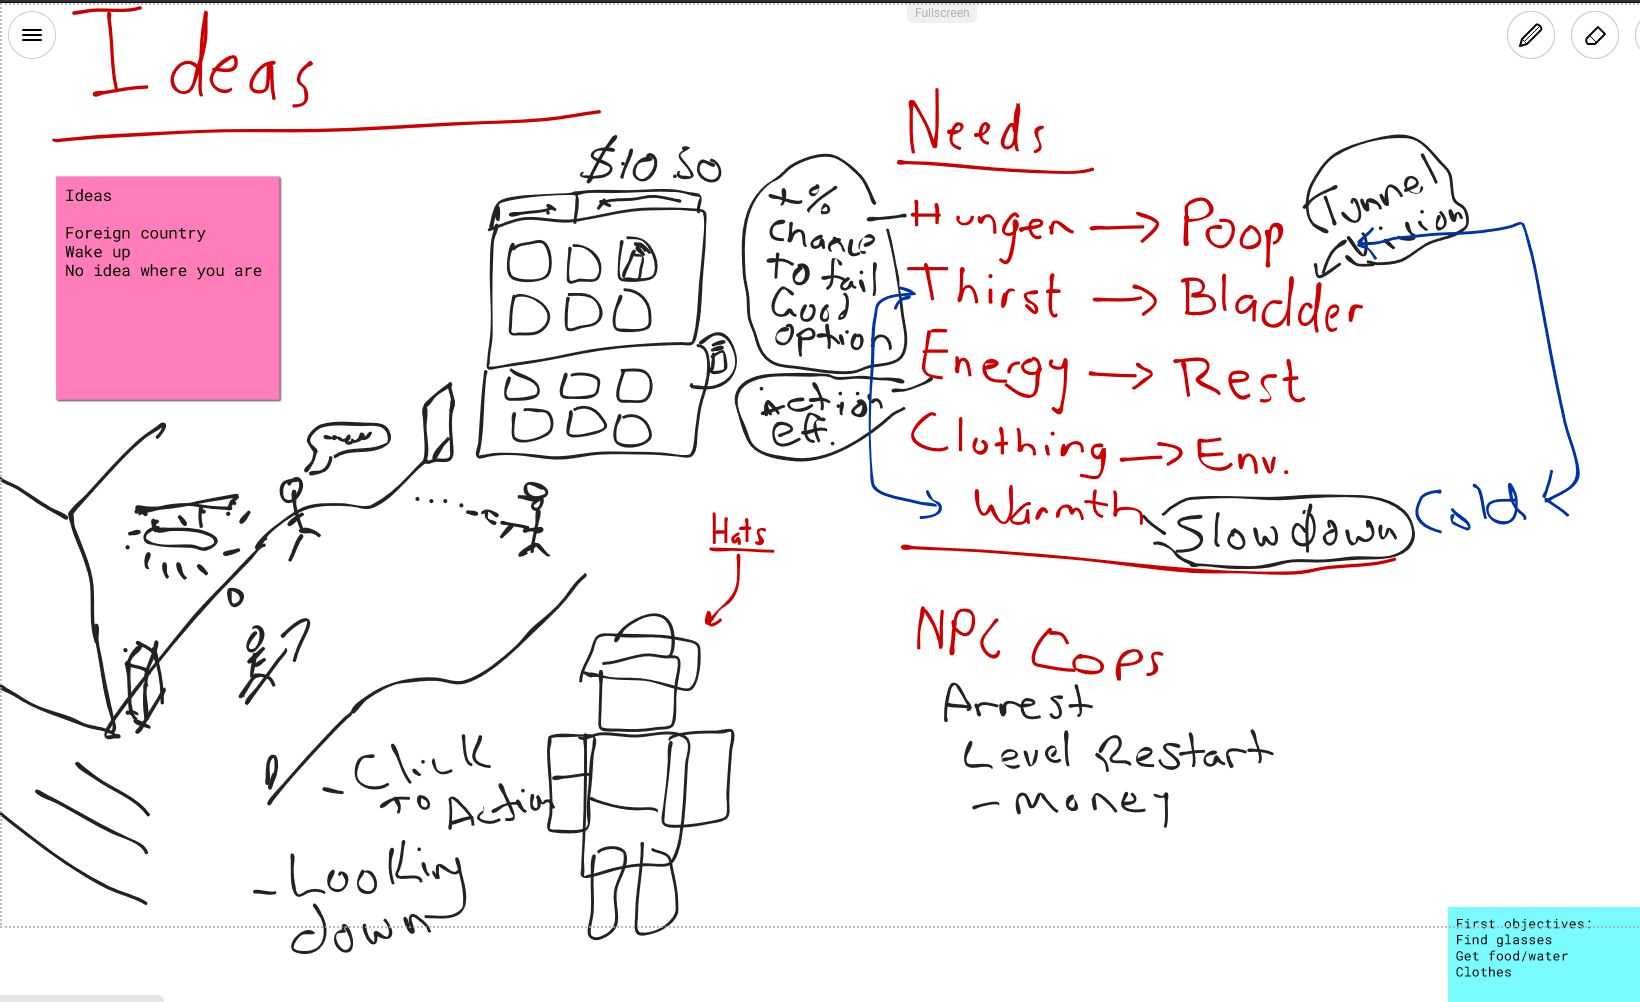 Fullscreen
Ideas
Ideas
Foreign country
Wake up
No idea where you are
$10.50
+%
Chance
To fail
Good
option
Action
eff.
Needs
Hunger → Poop
Thirst → Bladder
Energy → Rest
Clothing → Env.
Warmth
Slow down
Cold
Tunnel
Vision
Hats
NPC Cops
Arrest
Level Restart
- Money
- Click
To Action
- Looking
down
First objectives:
Find glasses
Get food/water
Clothes